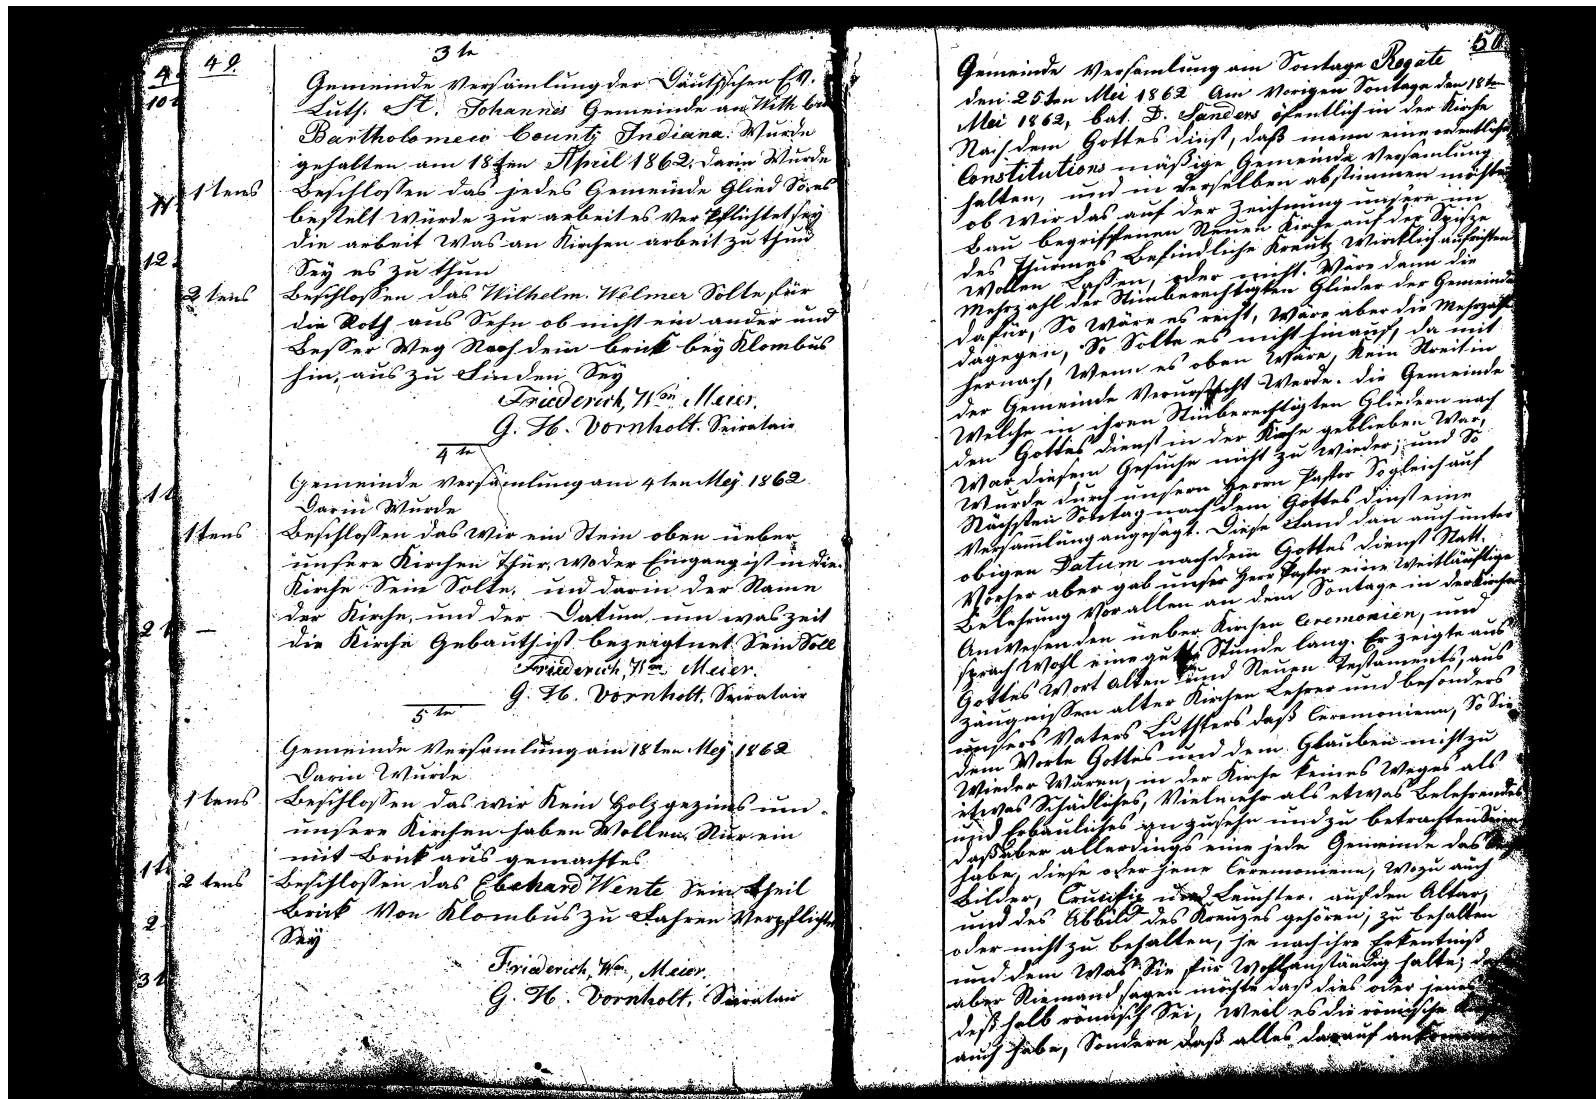 49.
3te
Gemeinde Versamlung der Däutschen Ev.
Luth. St. Johannes Gemeinde an With
Bartholomew County Indiana. Wurde
gehalten am 18ten April 1862. darin Wurde
1tens Beschlossen das jedes Gemeinde Glied So es
bestelt würde zur arbeit es Verpflichtet sey
die arbeit Was an Kirchen arbeit zu thun
Sey es zu thun
2tens Beschlossen das Wilhelm Welmer Solte für
die Roth aus Sehn ob nicht ein ander und
Besser Weg Nach dem brick bey Klombus
hin, aus zu Finden Sey
Friederich, Wm Meier.
G. H. Vornholt. Seiratair
4te
Gemeinde Versamlung am 4ten Mey 1862
Darin Wurde
1tens Beschlossen das wir ein Stein oben üeber
unsere Kirchen Thür, wo der Eingang ist in die
Kirche Sein Solte, und darin der Name
der Kirche, und der Datum um was zeit
die Kirche Gebauth ist bezeigtnet Sein Soll
Friederich, Wm Meier.
G. H. Vornholt, Seiratair
5te
Gemeinde Versamlung am 18ten Mey 1862
Darin Wurde
1tens Beschlossen das wir Kein Holzgezims um
unsere Kirchen haben Wollen, Nur ein
mit Brick aus gemachtes
2tens Beschlossen das Ebehard Wente Sein theil
Brick Von Klombus zu Fahren Verpflichtet
Sey
Friederich, Wm, Meier.
G. H. Vornholt, Seiratair
50
Gemeinde Versamlung am Sontage Rogate
den 25ten Mei 1862 Am Vorigen Sontage den 18ten
Mei 1862, bat D. Sanders öfentlich in der Kirche
Nach dem Gottes dinst, daß mann eine ordentliche
Constitutions mäßige Gemeinde Versamlung
halten, und in derselben abstimmen möchte
ob Wir das auf der Zeichnung unsere im
Bau begriffenen Neuen Kirche auf der Spisze
des Thurmes Befindliche Kreutz Wircklich aufrichten
Wollen Lassen, oder nicht. Wäre dann die
Mehrzahl der Stimberechtigten Glieder der Gemeinde
dafür, So wäre es recht, Wäre aber die Mehrzahl
dagegen, So Solte es nicht hinauf, da mit
hernach, Wenn es oben Wäre, Kein Streit in
der Gemeinde Verursacht Werde. die Gemeinde
Welche in ihren Stimberechtigten Gliedern nach
den Gottes dienst in der Kirche geblieben War,
War diesem Gesuche nicht zu Wieder; und So
Wurde durch unsern Herrn Pastor Sogleich auf
Nächsten Sontag nach dem Gottes dinst eine
Versammlung angesagt. Diese Fand dan auch unter
obigen Datum nach dem Gottes dienst Statt.
Vorher aber gab unser Herr Pastor eine Weitläuftige
Belehrung Vor allen an dem Sontage in der Kirche
Anwesenden üeber Kirchen Ceremonien, und
sprach Wohl eine gute Stunde lang. Er zeigte aus
Gottes Wort Alten und Neuen Testaments, aus
zäugnissen alter Kirchen Lehrer und besonders
unsers Vaters Luthters daß Ceremonienn, So Sie
dem Worte Gottes und dem Glauben nicht zu
Wieder Wären, in der Kirche keines Weges als
etwas Schädliches, Vielmehr als etwas Belehrendes
und Erbauliches an zusehn und zu betrachten Seien
daß aber allerdings eine jede Gemeinde das
habe, diese oder jene Ceremonienn, Wozu auch
Bilder, Crucifix und Leuchter auf den Altar,
und das Abbild des Kreuzes gehören; zu behalten
oder nicht zu behalten, je nach ihre Erkentniß
und dem Was Sie für Wohlanständig halte;
aber Niemand sagen möchte daß dies oder jenes
deßhalb römisch Sei, Weil es die römische
auch habe, Sondern daß alles darauf